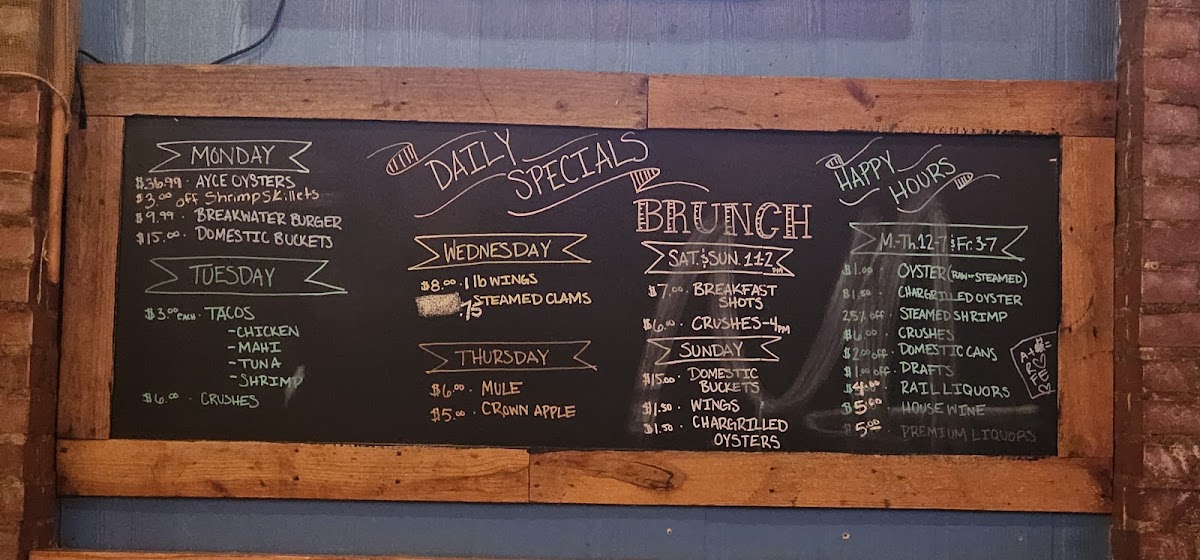 MONDAY
$36.99 · AYCE OYSTERS
$3.00 off Shrimp Skillets
$9.99 · BREAKWATER BURGER
$15.00 · DOMESTIC BUCKETS
TUESDAY
$3.00 EACH · TACOS
-CHICKEN
-MAHI
-TUNA
-SHRIMP
$6.00 · CRUSHES
DAILY
SPECIALS
WEDNESDAY
$8.00 · 1 lb WINGS
.75 STEAMED CLAMS
THURSDAY
$6.00 · MULE
$5.00 · CROWN APPLE
BRUNCH
SAT. & SUN. 11-2 PM
$7.00 · BREAKFAST
SHOTS
$6.00 · CRUSHES-4PM
SUNDAY
$15.00 · DOMESTIC
BUCKETS
$1.50 · WINGS
$1.50 · CHARGRILLED
OYSTERS
HAPPY
HOURS
M.-Th. 12-7 & Fr. 3-7
$1.00 · OYSTER (RAW OR STEAMED)
$1.50 · CHARGRILLED OYSTER
25% off · STEAMED SHRIMP
$6.00 · CRUSHES
$2.00 off · DOMESTIC CANS
$1.00 off · DRAFTS
$4.00 · RAIL LIQUORS
$5.00 · HOUSE WINE
$5.00 · PREMIUM LIQUORS